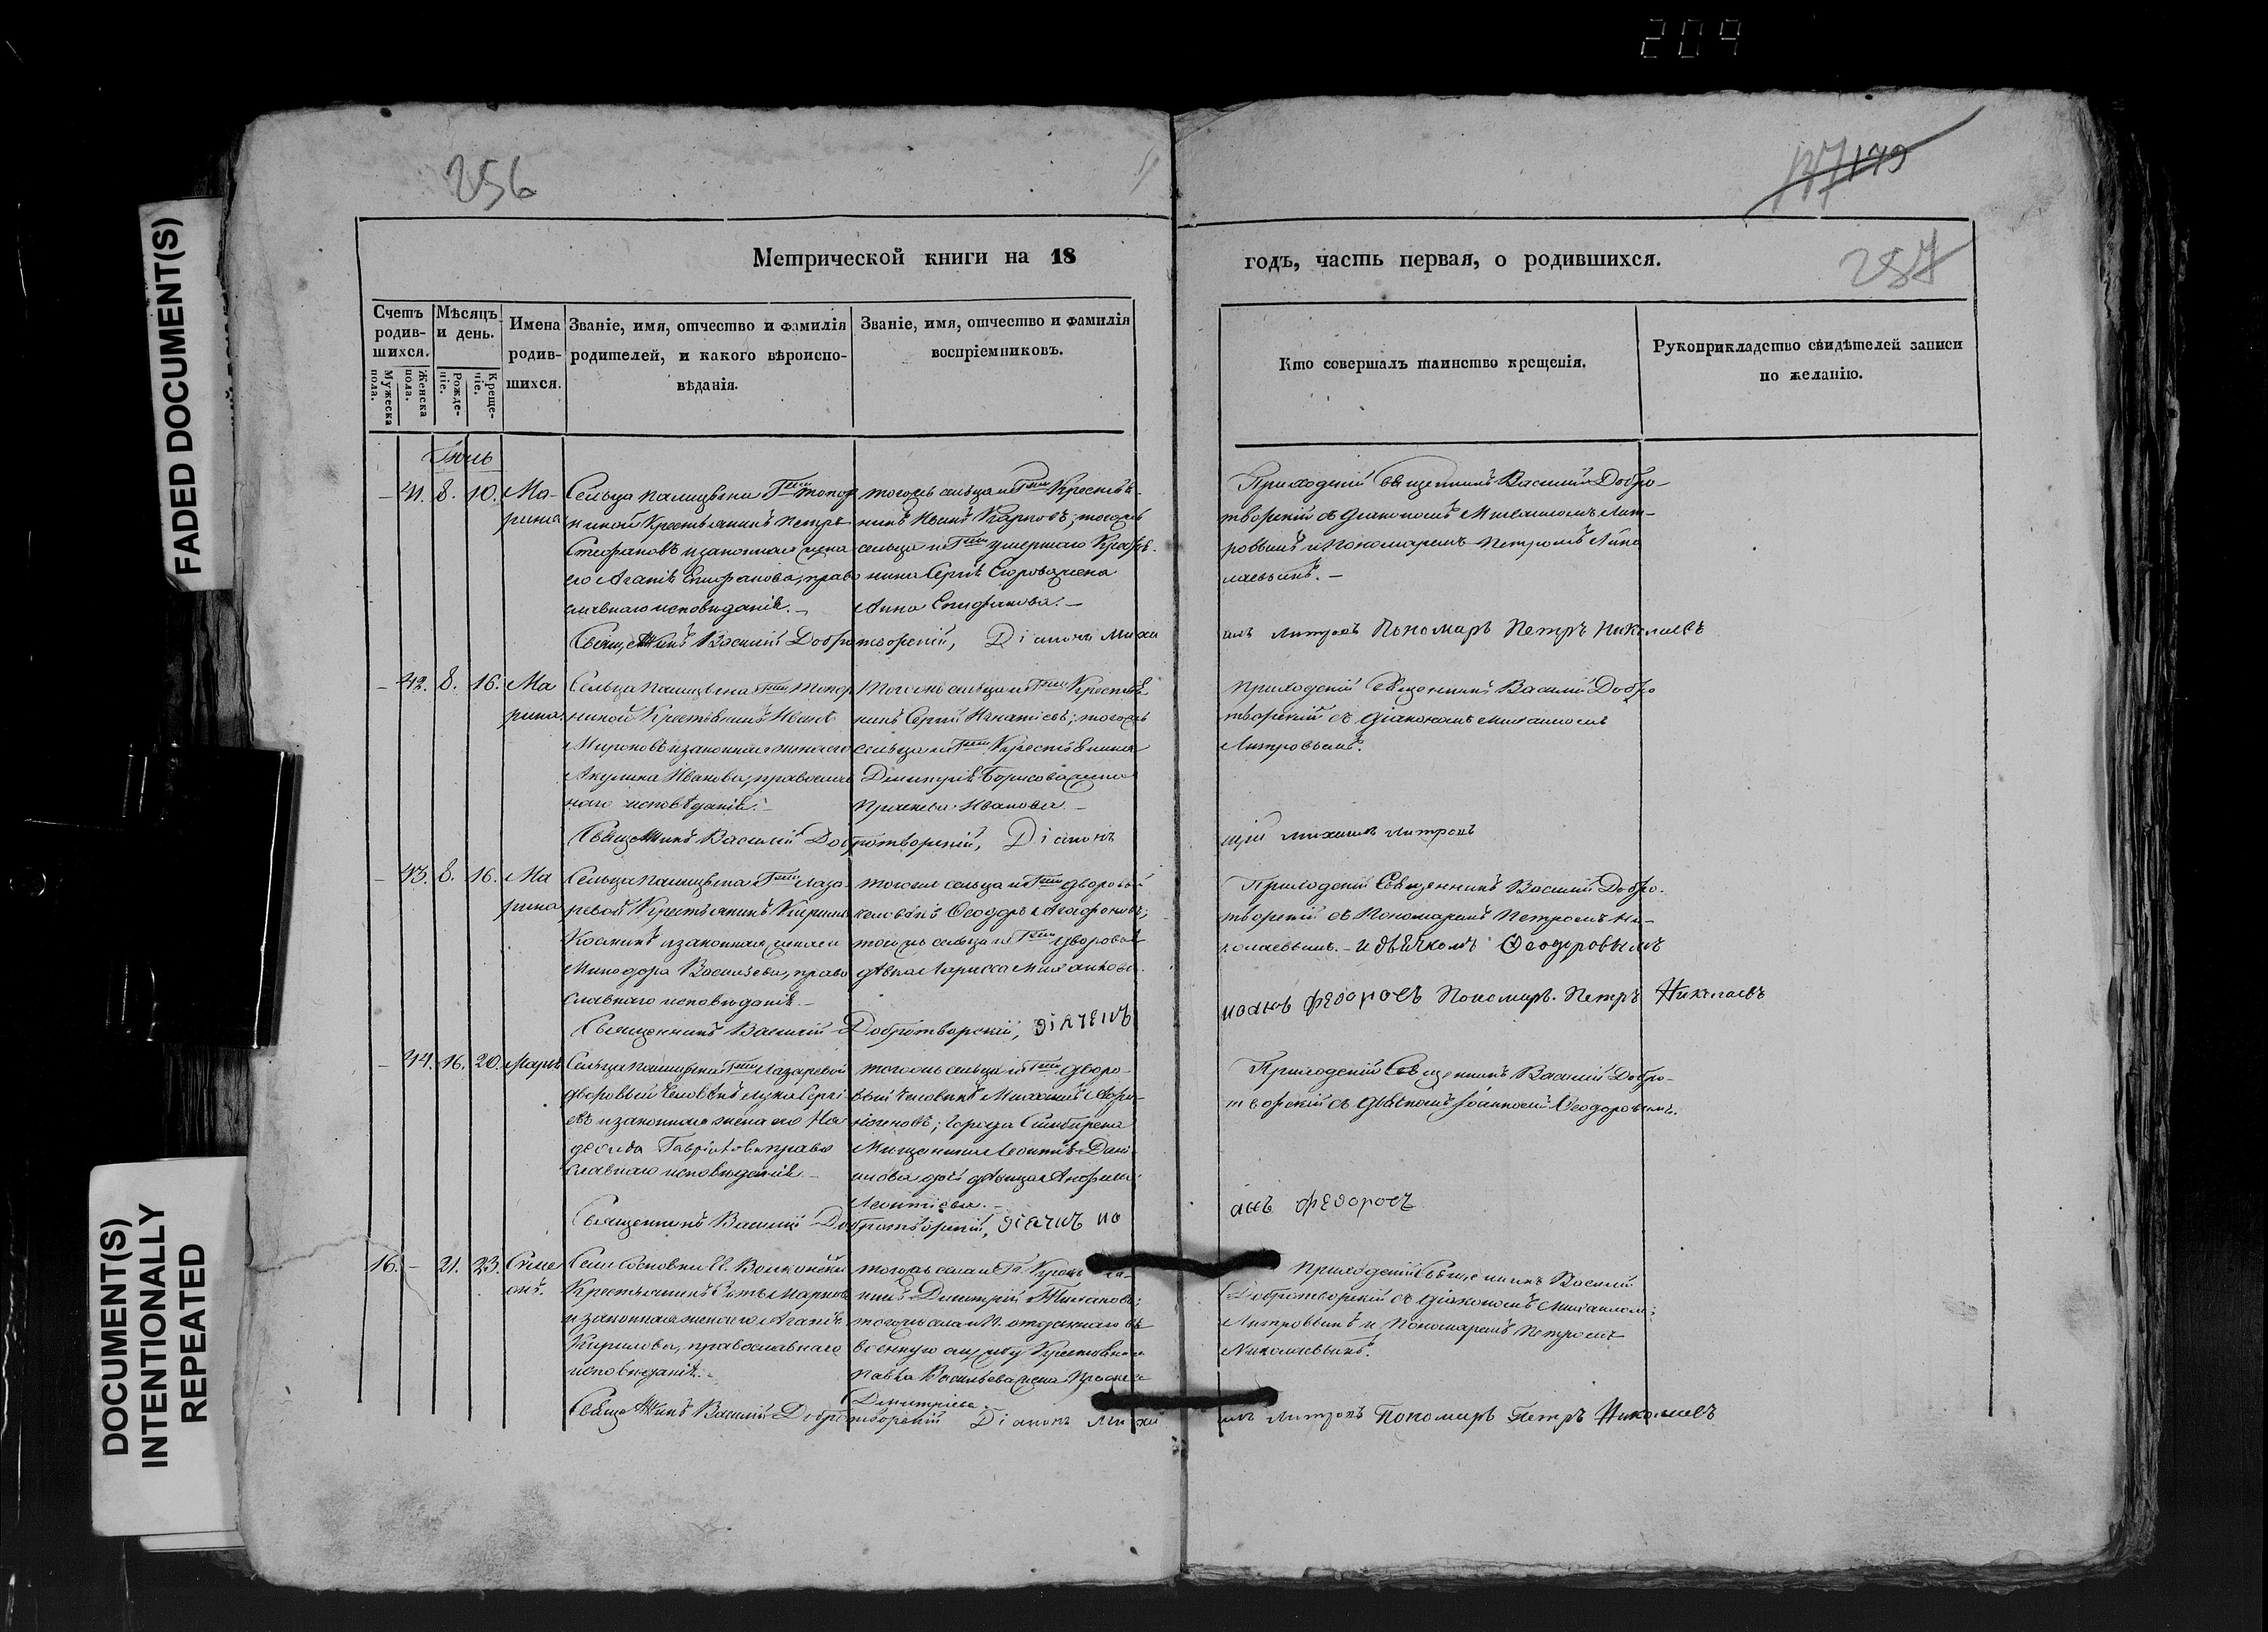 209
FADED DOCUMENT(S)
DOCUMENT(S)
INTENTIONALLY
REPEATED
256
177 179
257
Метрической книги на 18
годъ, часть первая, о родившихся.
Счетъ родив-шихся.
Мужеска пола.
Женска пола.
Мѣсяцъ и день.
Рожде-ніе.
Креще-ніе.
Имена родив-шихся.
Званіе, имя, отчество и фамилія
родителей, и какого вѣроиспо-
вѣданія.
Званіе, имя, отчество и фамилія
воспріемниковъ.
Кто совершалъ таинство крещенія.
Рукоприкладство свидѣтелей записи
по желанію.
Іюль
– 41. 8. 10. Ма-
рина
Сельца
никой Крестьянинъ Петръ
Стефановъ и законная жена
его Агапія Епифанова, право
славнаго исповѣданія. –
тогожъ сельца и Гжи Крестья-
нинъ Иванъ Карповъ; тогожъ
сельца и Гжи умершаго Крестья-
нина Сергѣя жена
Анна Епифанова. –
Приходскій Священникъ Василій Добро-
творскій съ Діакономъ Михаиломъ Лит-
ровымъ и Пономаремъ Петромъ Нико
лаевымъ. –
Священникъ Василій Добротворскій, Діаконъ Миха
илъ Литровъ Пономарь Петръ Николаевъ
– 42. 8. 16. Ма
рина.
Сельца
никой Крестьянинъ Иванъ
Мироновъ и законная жена его
Акулина Иванова, православ
наго исповѣданія. –
Тогожъ сельца и Гжи Крестья
нинъ Сергій Игнатіевъ; тогожъ
сельца и Гжи Крестьянина
Димитрія Борисова жена
Прасковья Иванова. –
Приходскій Священникъ Василій Добро
творскій съ Діакономъ Михаиломъ
Литровымъ.
Священникъ Василій Добротворскій, Діаконъ
Михаилъ Литровъ
– 43. 8. 16. Ма
рина
Сельца Гжи Лаза-
ревой Крестьянинъ
и законная жена его
Минодора Васильева, право
славнаго исповѣданія. –
тогожъ сельца и Гжи дворовый
человѣкъ Ѳеодоръ Агафоновъ;
тогожъ сельца и Гжи дворовая
дѣвка Лариса Михайлова.
Приходскій Священникъ Василій Добро-
творскій съ Пономаремъ Петромъ Ни-
колаевымъ. – и дьячкомъ Ѳеодоровымъ
Священникъ Василій Добротворскій, дiячекъ
иоанъ федоровъ Пономарь. Петръ Николаевъ
– 44. 16. 20. Марія
Сельца Гжи Лазаревой
дворовый человѣкъ Лука Сергѣ
евъ и законная жена его На
дежда Гаврилова право
славнаго исповѣданія. –
тогожъ сельца и Гжи дворо-
вый человѣкъ Михаилъ
города Симбирска
Мѣщанина Леонтія Дани
лова дочь дѣвица
Леонтіева. –
Приходскій Священникъ Василій Добро-
творскій съ дьячкомъ Іоанномъ Ѳеодоровымъ.
Священникъ Василій Добротворскій, дiячекъ ио
анъ федоровъ
16. – 21. 23. Симе
онъ.
Села Сосновки Волконской
Крестьянинъ
и законная жена его Агапія
Кирилова, православнаго
исповѣданія. –
тогожъ села и Гжи Крестья-
нинъ Димитрій
тогожъ села и отданнаго въ
военную службу Крестьянина
Павла Васильева жена
Димитріева.
Приходскій Священникъ Василій
Добротворскій съ Діакономъ Михаиломъ
Литровымъ и Пономаремъ Петромъ
Николаевымъ.
Священникъ Василій Добротворскій Діаконъ Михаи
илъ Литровъ Пономарь Петръ Николаевъ